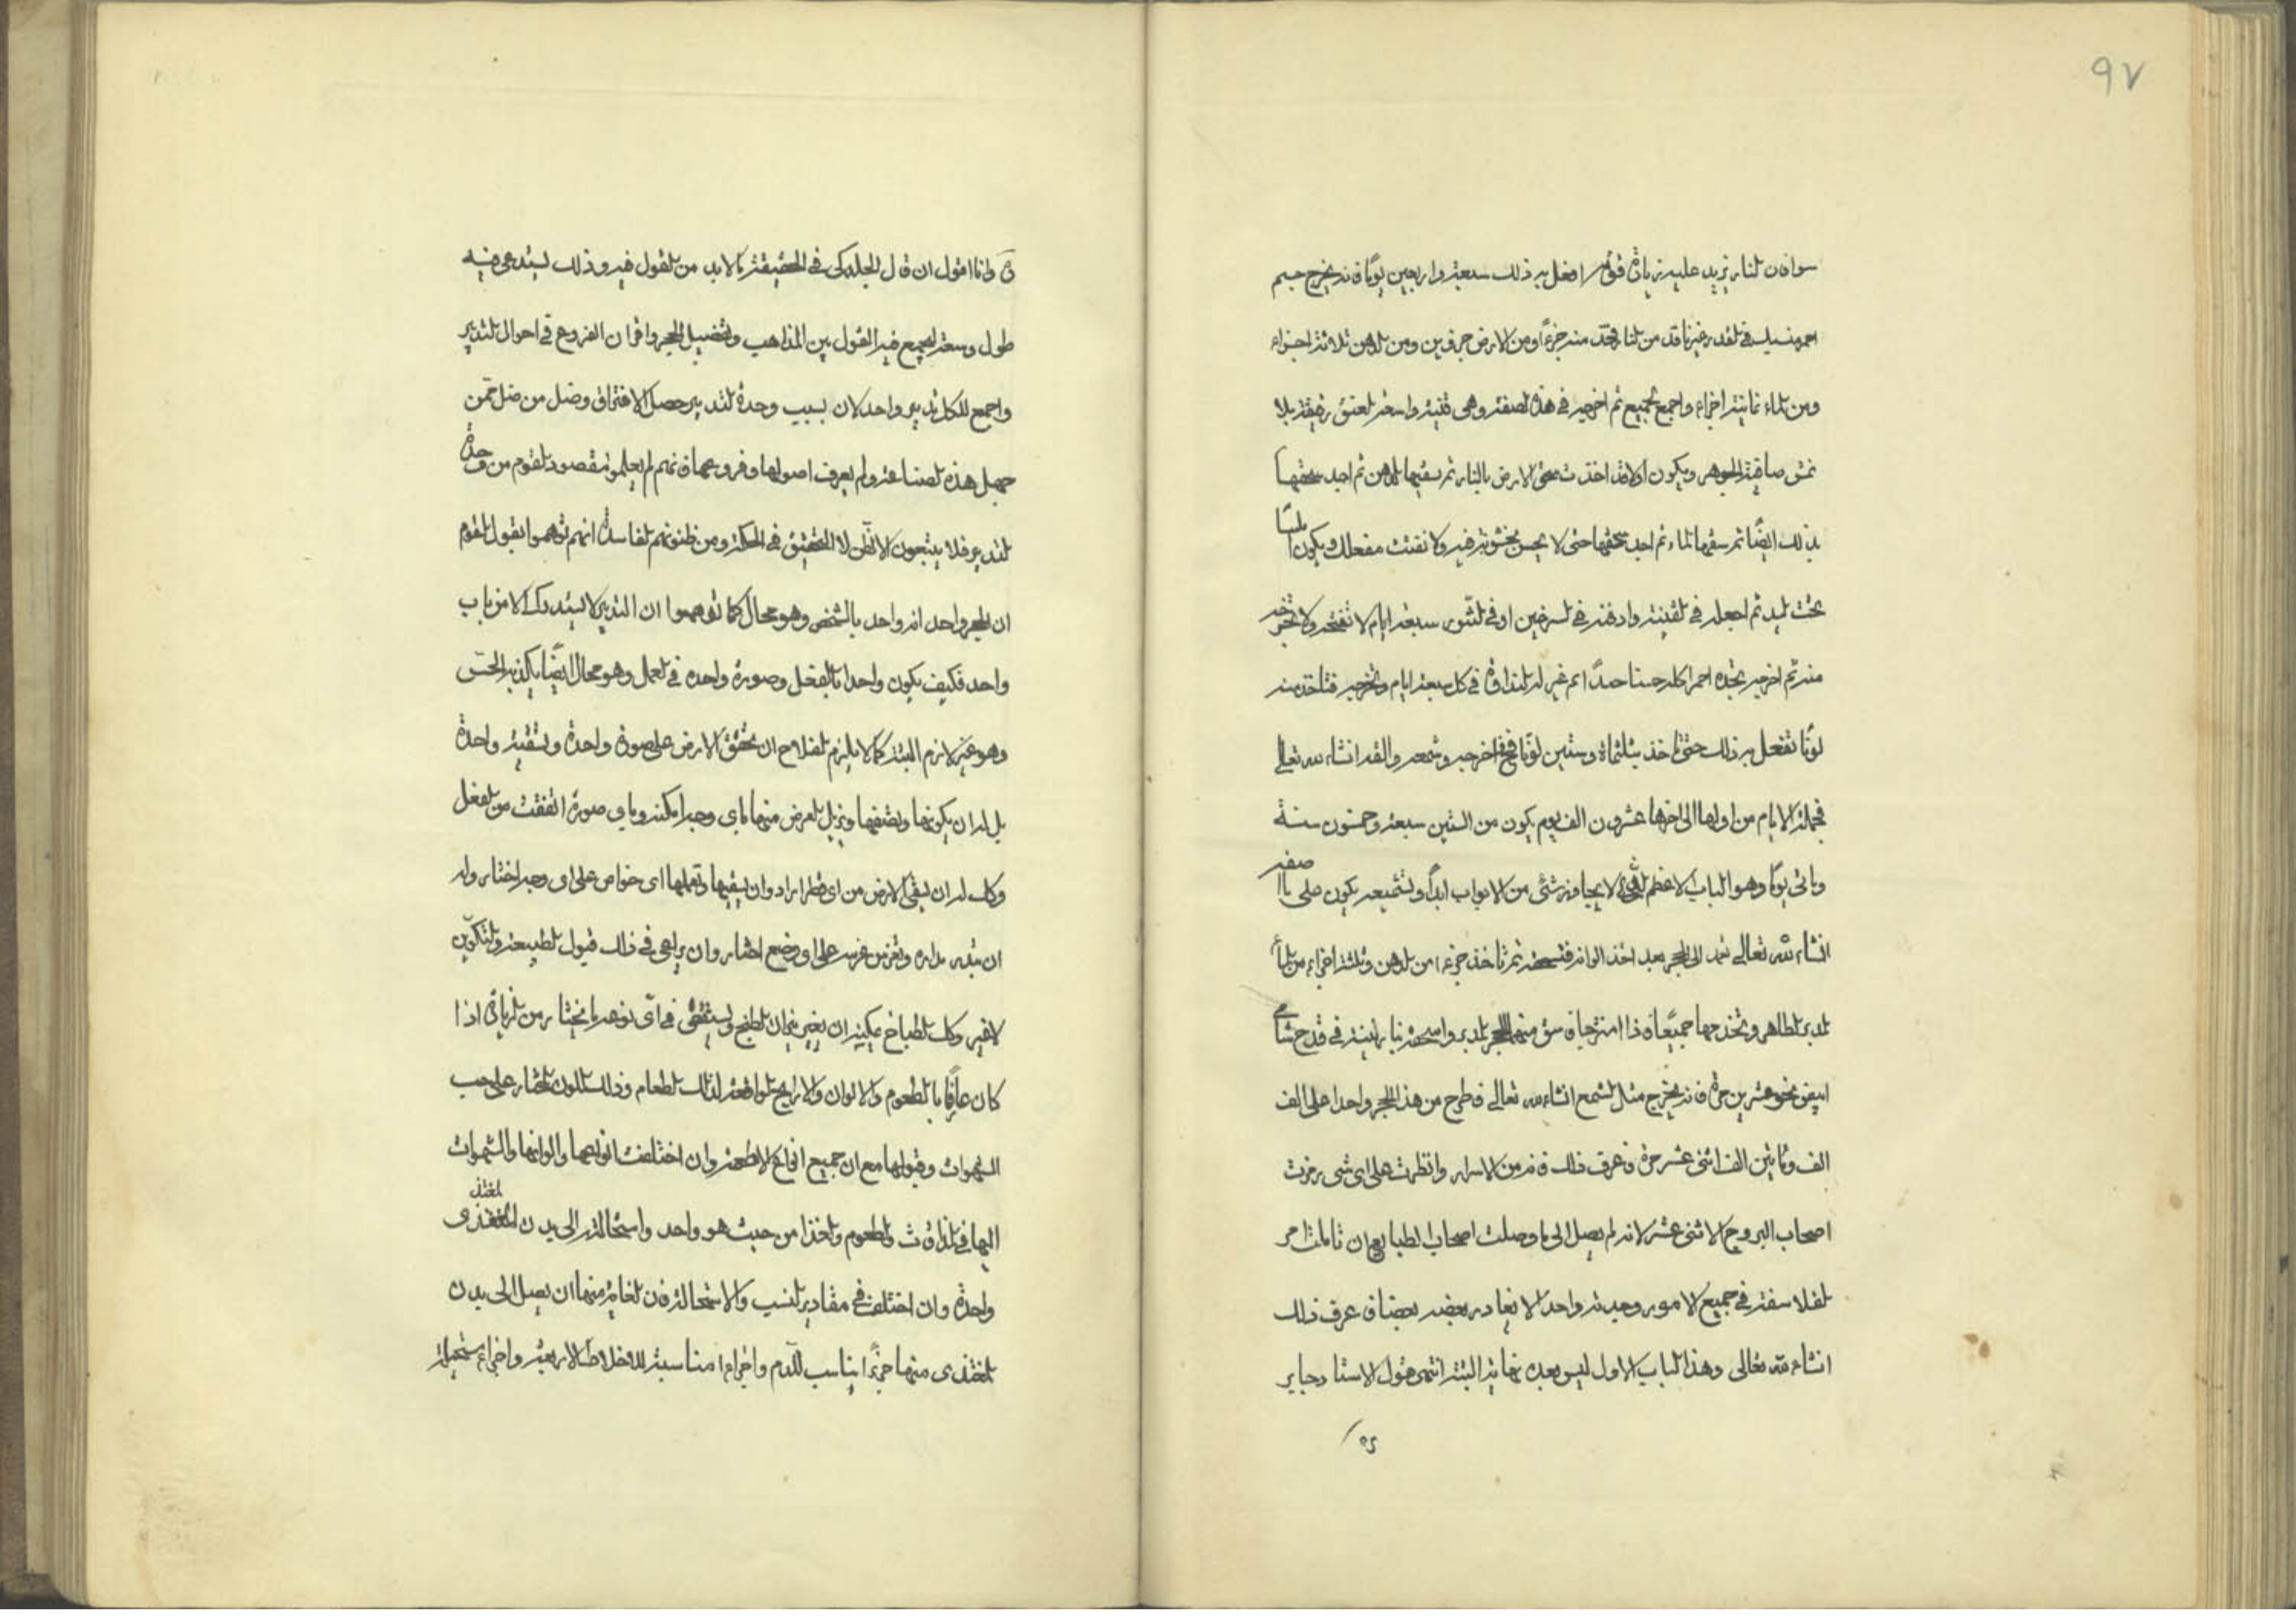 ٩٧
سوا فان النار تزيد عليه زيادة قوية افعل به ذلك سبعة واربعين يوما فانه يخرج جسم
احمر في القدر غير ناقد من النار فخذ منه جزءًا ومن الارض جزئين ومن الدهن ثلاثة اجزاء
ومن الماء ثمانية اجزاء واجمع الجميع ثم اخرجه في هذه الصفة وهي قنينة واسعة العنق رقيقة بلا
نمش صافية الجوهر ويكون اولا قد اخذت سحق الارض بالنار ثم سقيها الدهن ثم اجيد سحقها
بذلك ايضًا ثم سقها الماء ثم اجيد سحقها حتى لا يحس بخشونة فيه ولا نقتت مفعلك ويكون لينًا
تحت اليد ثم اجعله في القنينة وادفنه في السرجين او في التنور سبعة ايام لا تفتحه ولا تخرجه
منه ثم اخرجه تجده احمرا كله حسنا جدًا ثم غير له النداوة في كل سبعة ايام وتخرجه فتاخذ منه
لونًا تفعل به ذلك حتى تاخذ ثلثمائة وستين لونًا فح اخرجه وشمعه والقه انشاء الله تعالى
فجملة الايام من اولها الى اخرها عشرون الف يوم يكون من السنين سبعة وخمسون سنة
ومائتي يومًا وهو الباب الاعظم الذي لا يجاوزه شئ من الابواب ابدًا وتشميعه يكون على ما اصفه
انشاء الله تعالى تعمد الى الحجر بعد اخذ الوانه فتسحقه ثم تاخذ جزءا من الدهن وثلثة اجزاء من الماء
المدبر الطاهر وتخذجهما جميعًا فاذا امتزجا فاسق منهما الحجر المدبر واسحقه بنار لينة في قدح شامي
ابيض نحو عشرين مرة فانه يخرج مثل الشمع انشاء الله تعالى فاطرح من هذا الحجر واحدا على الف
الف ومائتين الف اثنى عشر مرة فاعرف ذلك فانه من الاسرار وانظر على اى شى رمزت
اصحاب البروج الاثنى عشر لانه لم يصل الى ما وصلت اصحاب الطبايع ان تاملت امر
الفلاسفة في جميع الامور وجدته واحدا لا يغادر بعضه بعضا فاعرف ذلك
انشاء الله تعالى وهذا الباب الاول ليس بعده نهاية البتة انتهى قول الاستاد جابر
وانا اقول ان قال الجلدكي في الحقيقة ما لا بد من القول فيه وذلك يستدعي فيه
طول وسعة ليجمع فيه القول بين المذاهب وتفضيل الحجر واقران الفروع في احوال التدبير
واجمع للكل تدبير واحد لان بسبب وحدة التدبير حصل الافتراق وضل من ضل ممن
جهل هذه الصناعة ولم يعرف اصولها وفروعها فانهم لم يعلموا مقصود القوم من وحدة
التدبير فلا يتبعون الا الظن لا التحقيق في الحكمة ومن ظنونهم الفاسدة انهم توهموا بقول القوم
ان الحجر واحد انه واحد بالشخص وهو محال كما توهموا ان التدبير لا يستدرك الا من باب
واحد فكيف يكون واحدا بالفعل وصورة واحده في العمل وهو محال ايضًا يكذبه الحس
وهو غير لازم البتة كما لا يلزم الفلاح ان يحقق الارض على صورة واحدة وسقية واحدة
بل له ان يكونها ويضيفها ويزيل العرض منها باى وجه امكنه وباى صورة اتفقت من الفعل
وكك له ان يسقي الارض من اى قطر اراد وان يسقيها وتعملها اى خواص على اى وجه اختار وله
ان يبذر بذاره ويغرس غرسه على اى وضع اختار وان يراعى في ذلك قبول الطبيعة والتكوين
لا غير وكك الطباخ يمكنه ان يغير نيران الطبخ ويستقصى في اى نوعه ما يختار من الزيادة اذا
كان عارفًا بالطعوم والالوان والاراييح الموافقة لذلك الطعام وذلك اللون المختار على حسب
الشهوات وقبولها مع ان جميع انواع الاطعمة وان اختلفت انواعها والوانها والشهوات
اليها في المذاقات والطعوم والغذا من حيث هو واحد واستحالته الى بدن المغتذى
واحدة وان اختلفت في مقادير النسب والاستحالة فان الغاية منهما ان يصل الى بدن
المغتذى منها جزءًا يناسب الدم واجزاء مناسبة للاخلاط الاربعة واجزاء مستحيلة